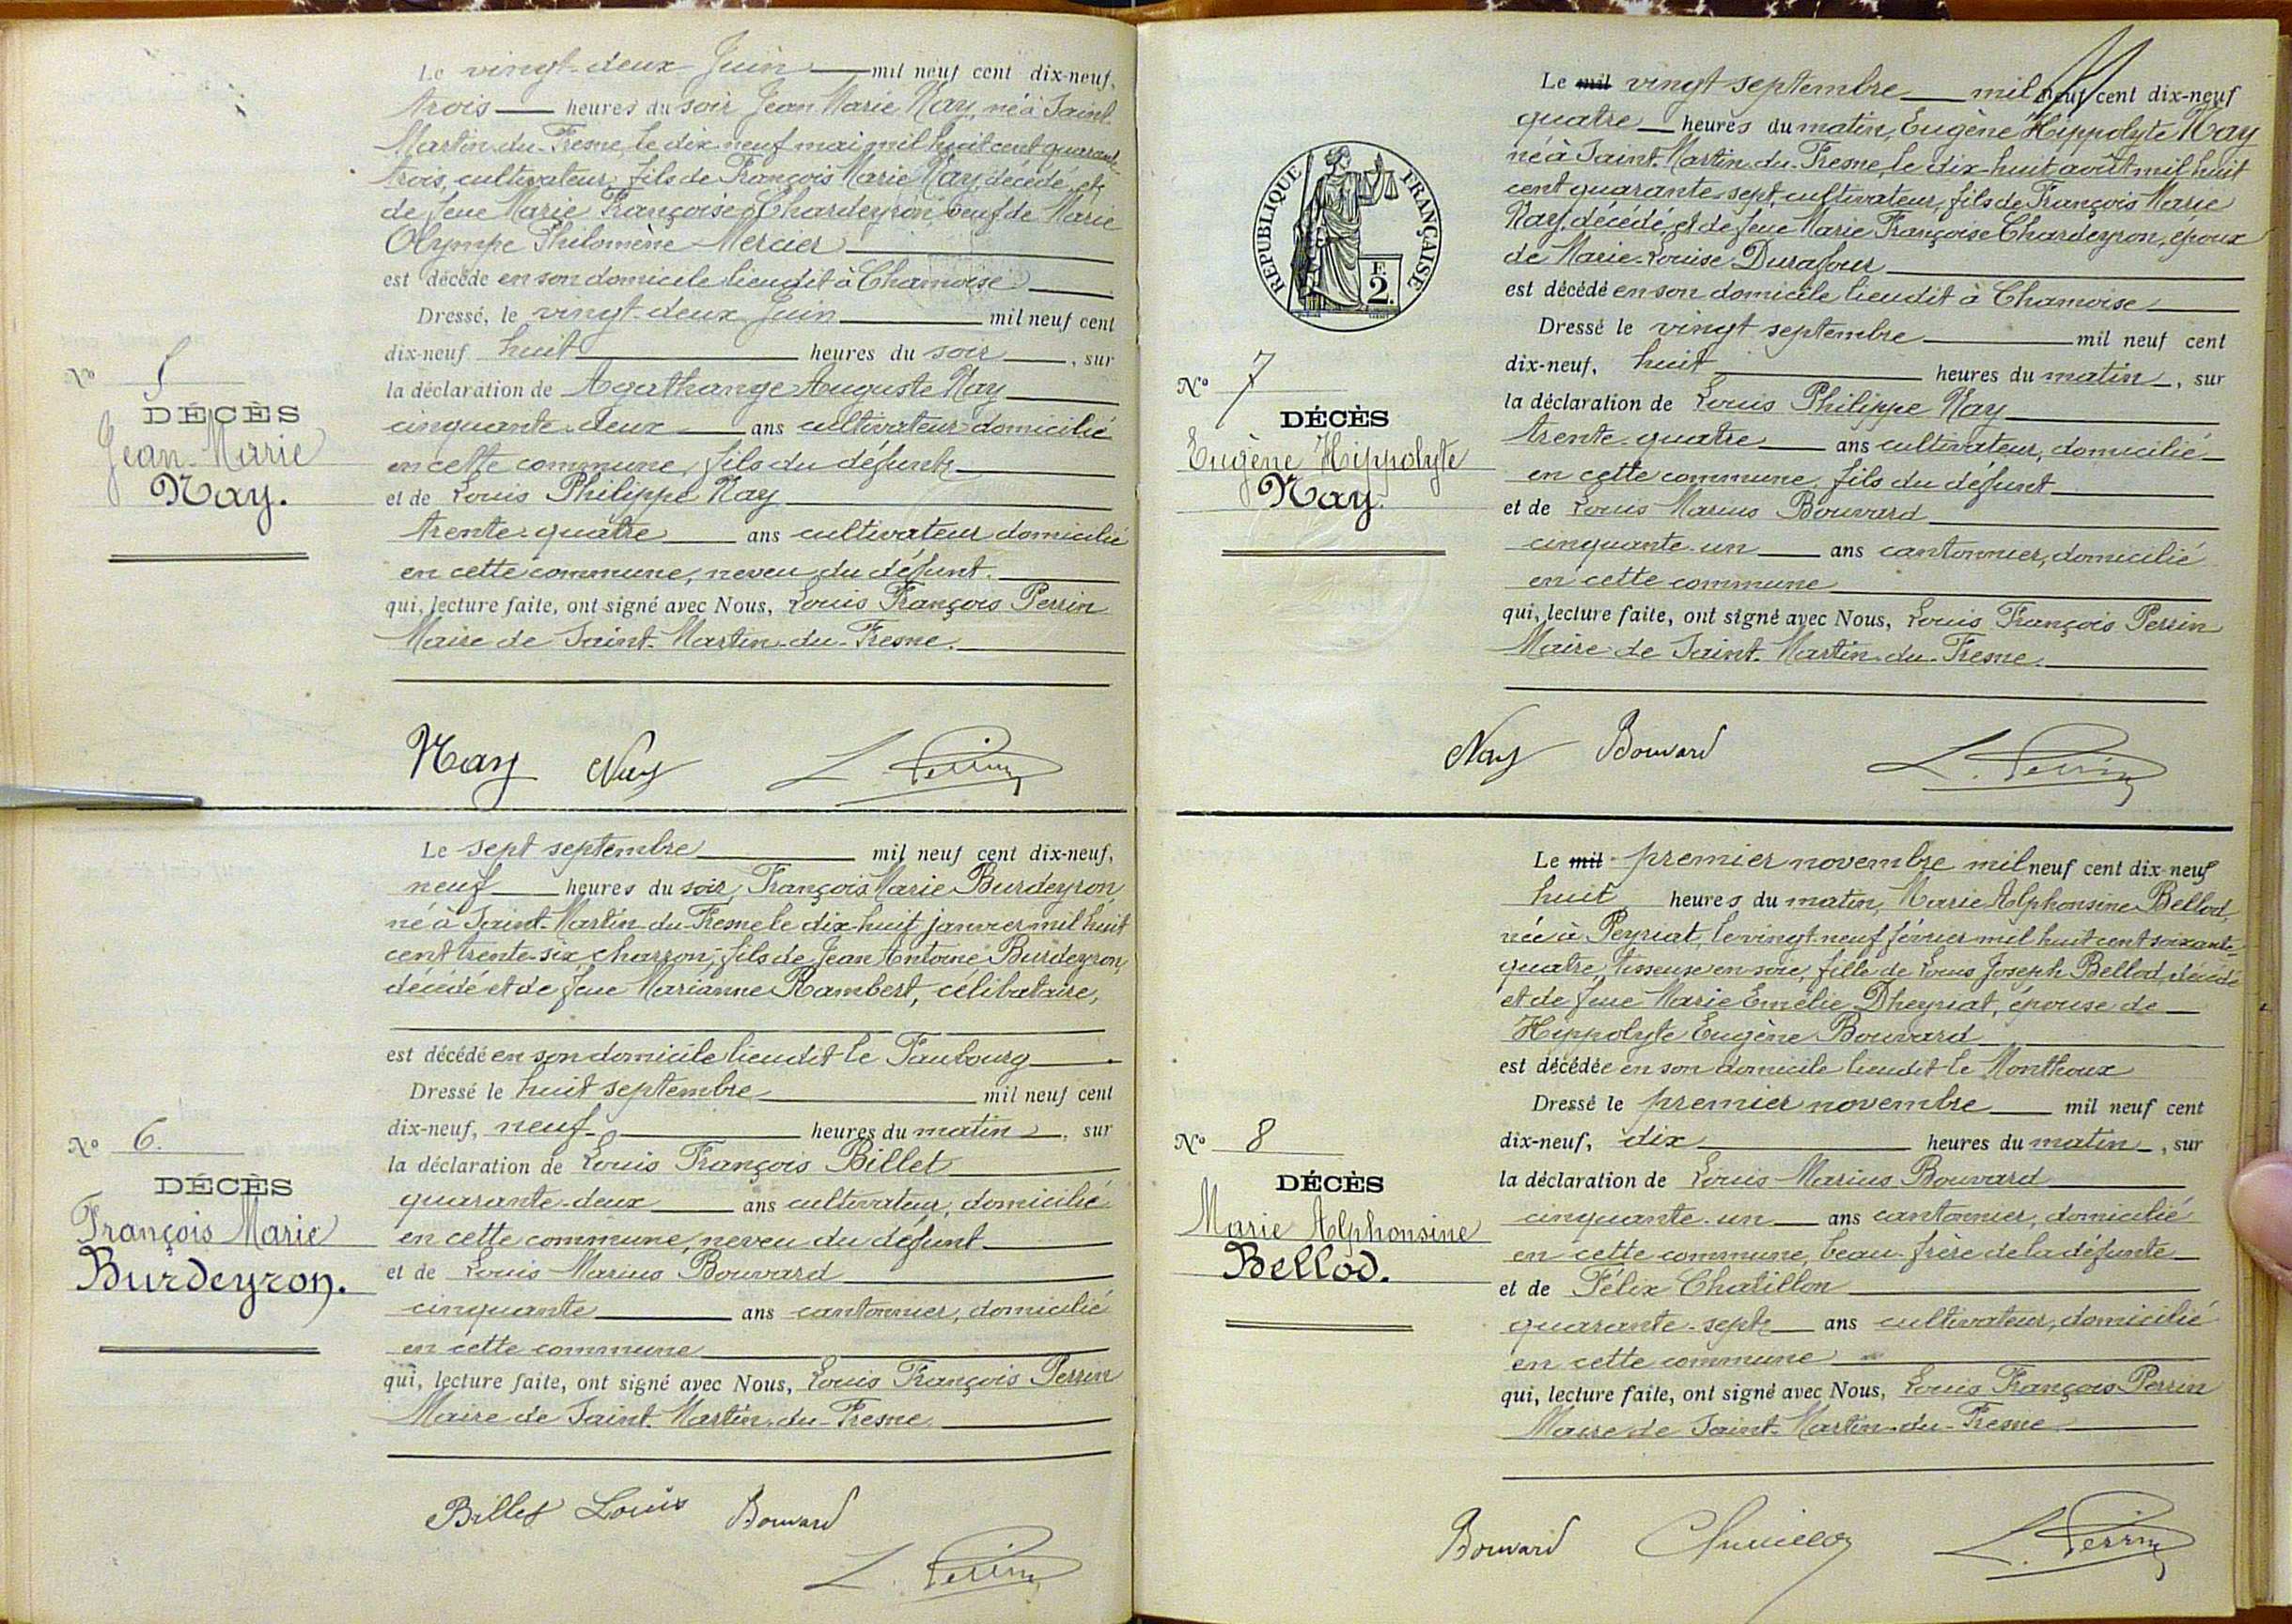 Le vingt-deux Juin mil neuf cent dix-neuf,
trois heures du soir Jean Marie Nay, né à Saint
Martin-du-Fresne, le dix-neuf mai mil huit cent quarante
trois, cultivateur, fils de François Marie Nay, décédé, et
de feue Marie Françoise Chardeyron, veuf de Marie
Olympe Philomène Mercier
est décédé en son domicile lieudit à Chamoise
Dressé, le vingt-deux Juin mil neuf cent
dix-neuf huit heures du soir, sur
la déclaration de Agathange Auguste Nay
cinquante-deux ans cultivateur domicilié
en cette commune, fils du défunt
et de Louis Philippe Nay
trente-quatre ans cultivateur domicilié
en cette commune, neveu du défunt.
qui, lecture faite, ont signé avec Nous, Louis François Perrin
Maire de Saint-Martin-du-Fresne.
N° 5
DÉCÈS
Jean-Marie
Nay.
Nay Nay L. Perrin
Le sept septembre mil neuf cent dix-neuf,
neuf heures du soir, François Marie Burdeyron
né à Saint-Martin-du-Fresne le dix-huit janvier mil huit
cent trente-six, charron, fils de Jean Antoine Burdeyron,
décédé et de feue Marianne Rambert, célibataire,
est décédé en son domicile lieudit le Faubourg
Dressé le huit septembre mil neuf cent
dix-neuf, neuf heures du matin, sur
la déclaration de Louis François Billet
quarante-deux ans cultivateur, domicilié
en cette commune, neveu du défunt
et de Louis Marius Bouvard
cinquante ans cantonnier, domicilié
en cette commune
qui, lecture faite, ont signé avec Nous, Louis François Perrin
Maire de Saint-Martin-du-Fresne
N° 6.
DÉCÈS
François Marie
Burdeyron.
Billet Louis Bouvard
L. Perrin
Le mil vingt septembre mil neuf cent dix-neuf
quatre heures du matin, Eugène Hippolyte Nay
né à Saint-Martin-du-Fresne, le dix-huit août mil huit
cent quarante-sept, cultivateur, fils de François Marie
Nay, décédé, et de feue Marie Françoise Chardeyron, époux
de Marie-Louise Durafour
est décédé en son domicile lieudit à Chamoise
Dressé le vingt septembre mil neuf cent
dix-neuf, huit heures du matin, sur
la déclaration de Louis Philippe Nay
trente-quatre ans cultivateur, domicilié
en cette commune, fils du défunt
et de Louis Marius Bouvard
cinquante-un ans cantonnier, domicilié
en cette commune
qui, lecture faite, ont signé avec Nous, Louis François Perrin
Maire de Saint-Martin-du-Fresne.
REPUBLIQUE FRANÇAISE
F.
2.
N° 7
DÉCÈS
Eugène Hippolyte
Nay.
Nay Bouvard L. Perrin
Le mil premier novembre mil neuf cent dix-neuf
huit heures du matin, Marie Alphonsine Bellod,
née à Peyriat, le vingt-neuf février mil huit cent soixante-
quatre, tisseuse en soie, fille de Louis Joseph Bellod, décédé
et de feue Marie Emélie Dheyriat, épouse de
Hippolyte Eugène Bouvard
est décédée en son domicile lieudit le Monthoux
Dressé le premier novembre mil neuf cent
dix-neuf, dix heures du matin, sur
la déclaration de Louis Marius Bouvard
cinquante-un ans cantonnier, domicilié
en cette commune, beau-frère de la défunte
et de Félix Chatillon
quarante-sept ans cultivateur, domicilié
en cette commune
qui, lecture faite, ont signé avec Nous, Louis François Perrin
Maire de Saint-Martin-du-Fresne
N° 8
DÉCÈS
Marie Alphonsine
Bellod.
Bouvard L. Perrin